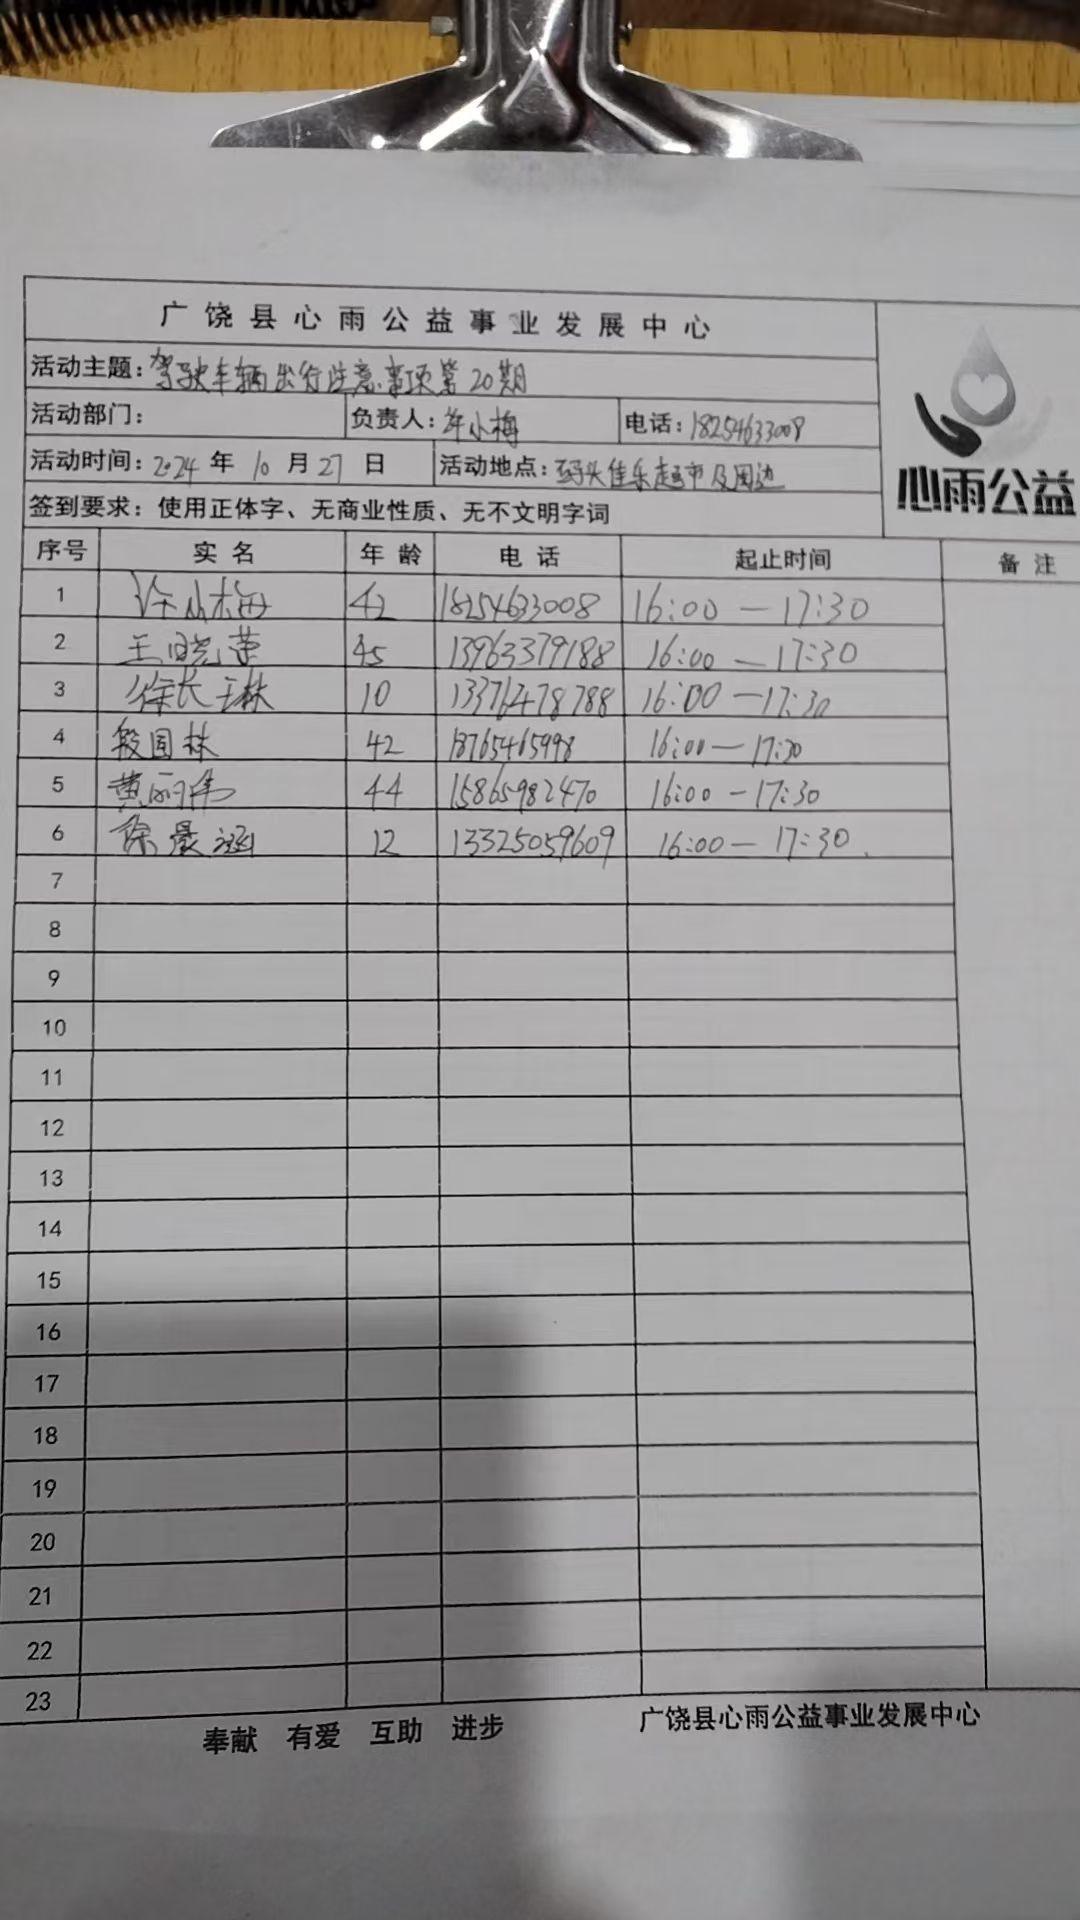 广饶县心雨公益事业发展中心
活动主题：驾驶车辆出行注意事项第20期
活动部门： 负责人：许小梅 电话：18254633008
活动时间：2024年10月27日 活动地点：码头佳乐超市及周边
心雨公益
签到要求：使用正体字、无商业性质、无不文明字词
序号 实名 年龄 电话 起止时间 备注
1 许小梅 42 18254633008 16:00—17:30
2 王晓莲 45 13963379188 16:00—17:30
3 徐长琳 10 13376478788 16:00—17:30
4 段国栋 42 18765465998 16:00—17:30
5 黄丽伟 44 15865982470 16:00—17:30
6 徐晨涵 12 13325059609 16:00—17:30
7
8
9
10
11
12
13
14
15
16
17
18
19
20
21
22
23
奉献 有爱 互助 进步 广饶县心雨公益事业发展中心